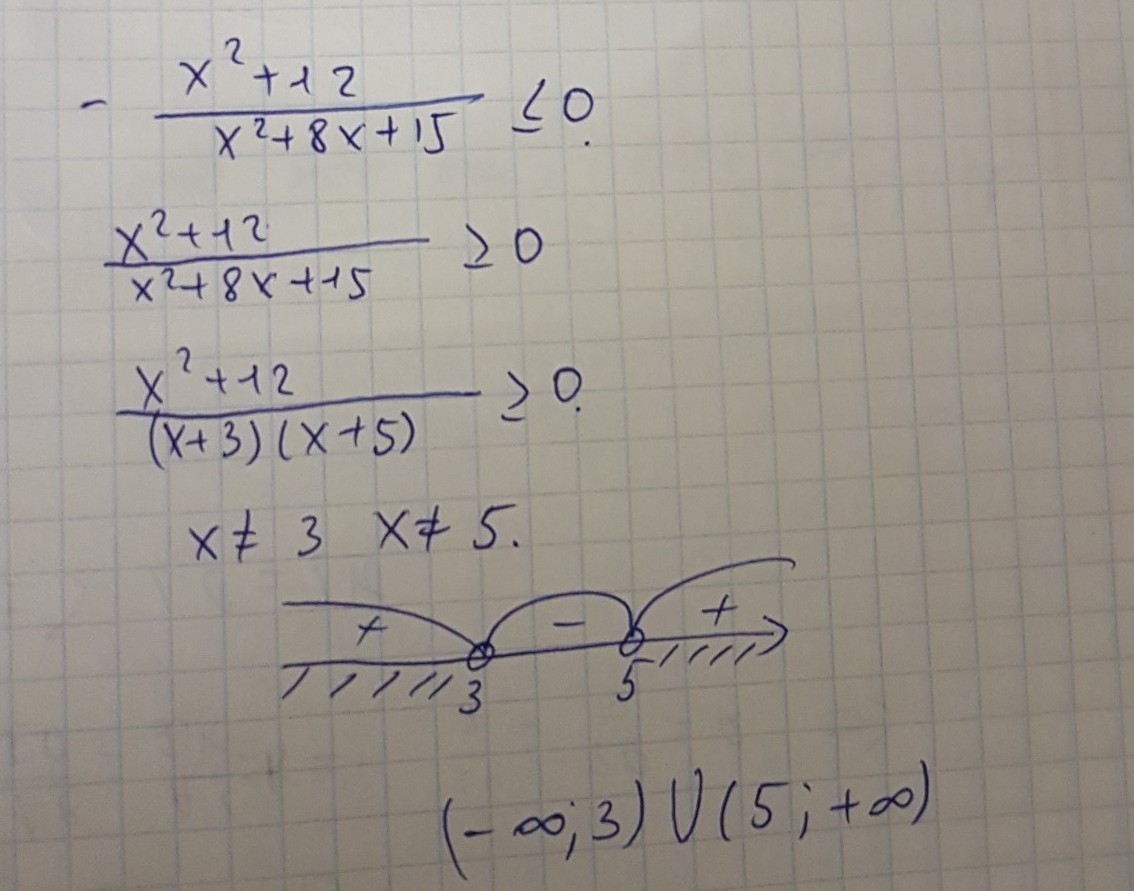 - x²+12 / x²+8x+15 ≤ 0.
x²+12 / x²+8x+15 ≥ 0
x²+12 / (x+3)(x+5) ≥ 0.
x≠ 3 x≠ 5.
+ - +
3 5
(-∞;3) ∪ (5;+∞)